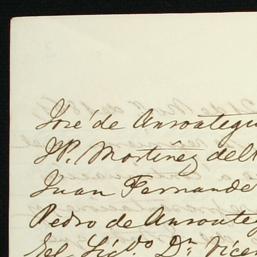 José de Ansoategui
M. Martinez del
Juan Fernande
Pedro de Ansoateg
El Lic.do Dn. Vicen